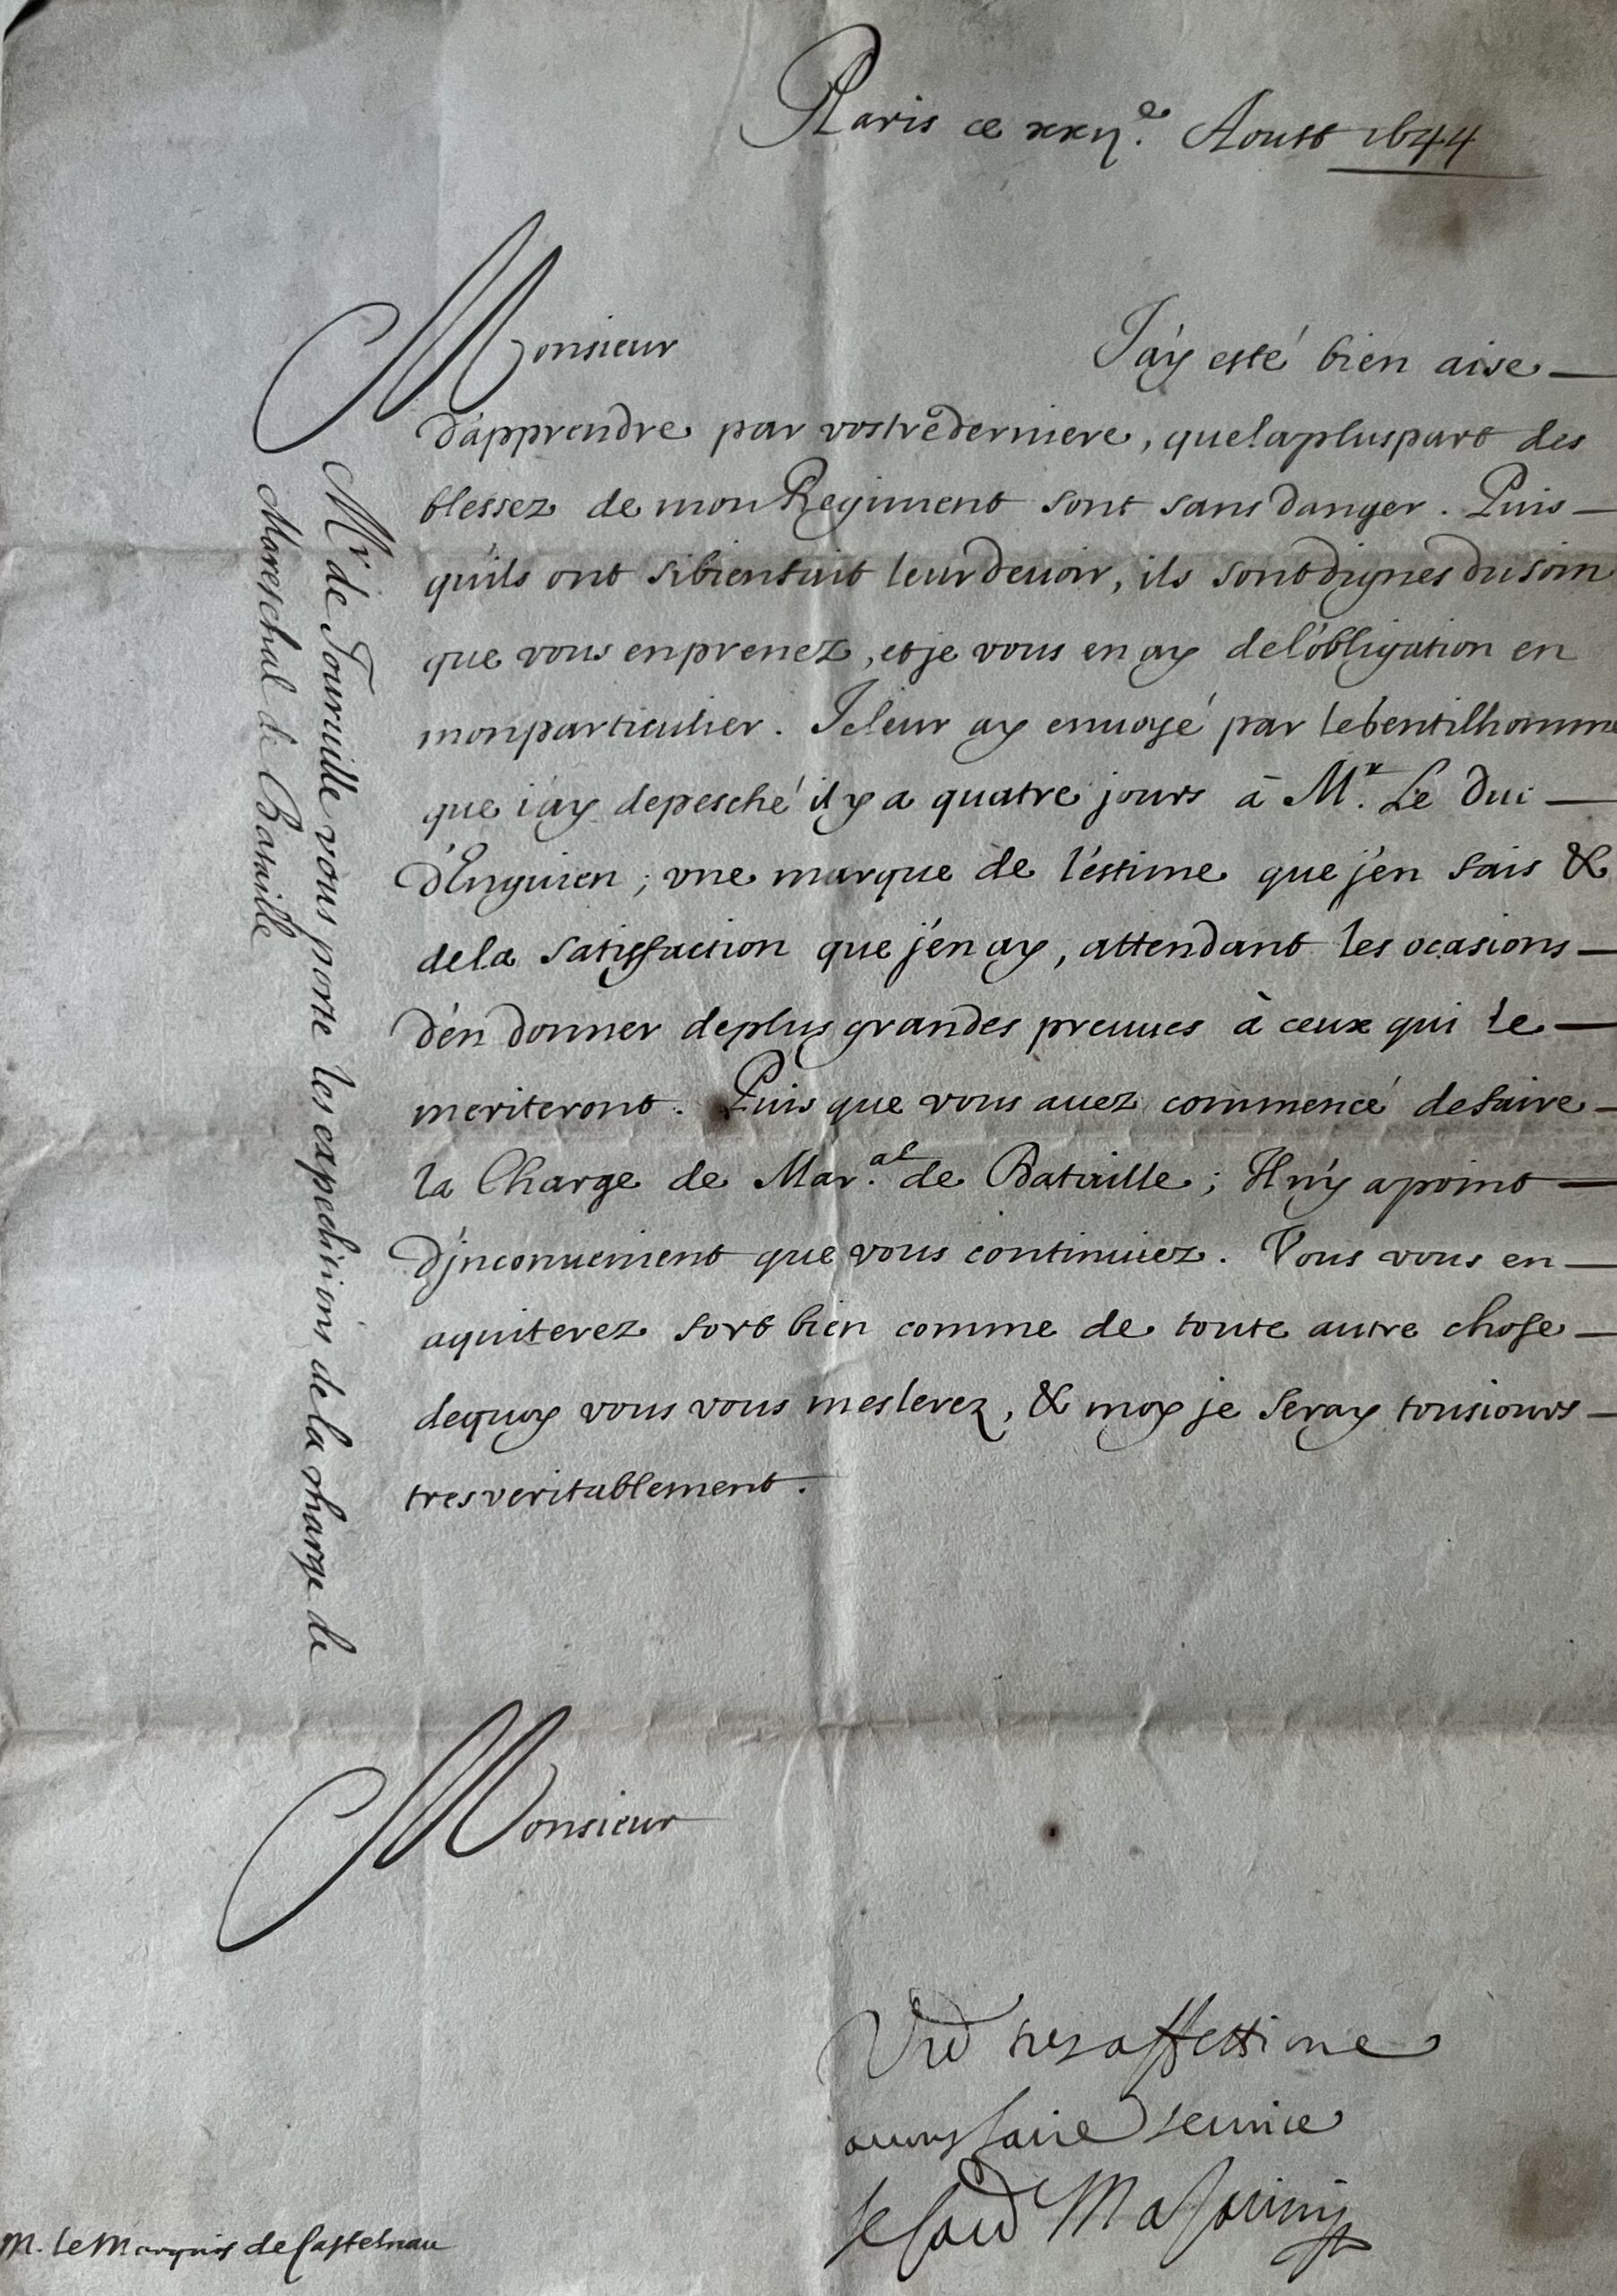 Paris ce xxij.e Aoust 1644
Monsieur J'ay esté bien aise
d'apprendre par vostre derniere, que la pluspart des
blessez de mon Regiment sont sans danger. Puis
qu'ils ont si bien fait leur devoir, ils sont dignes du soin
que vous en prenez, et je vous en ay de l'obligation en
mon particulier. Je leur ay enuoyé par le Gentilhomme
que i'ay depesché il y a quatre jours à Mr. Le Duc
d'Enguien; vne marque de l'estime que j'en fais &
de la satisfaction que j'en ay, attendant les ocasions
d'en donner de plus grandes preuues à ceux qui le
meriteront. Puis que vous auez commencé de faire
la Charge de Mar.al de Bataille; Il n'y a point
d'jnconuenient que vous continuiez. Vous vous en
aquiterez fort bien comme de toute autre chose
dequoy vous vous meslerez, & moy je seray tousiours
tres veritablement.
Mr. de Touruille vous porte les expeditions de la charge de
Mareschal de Bataille
Monsieur
Vre tres affettione
a vous faire seruice
le Card Mazarini
M. le Marquis de Castelnau